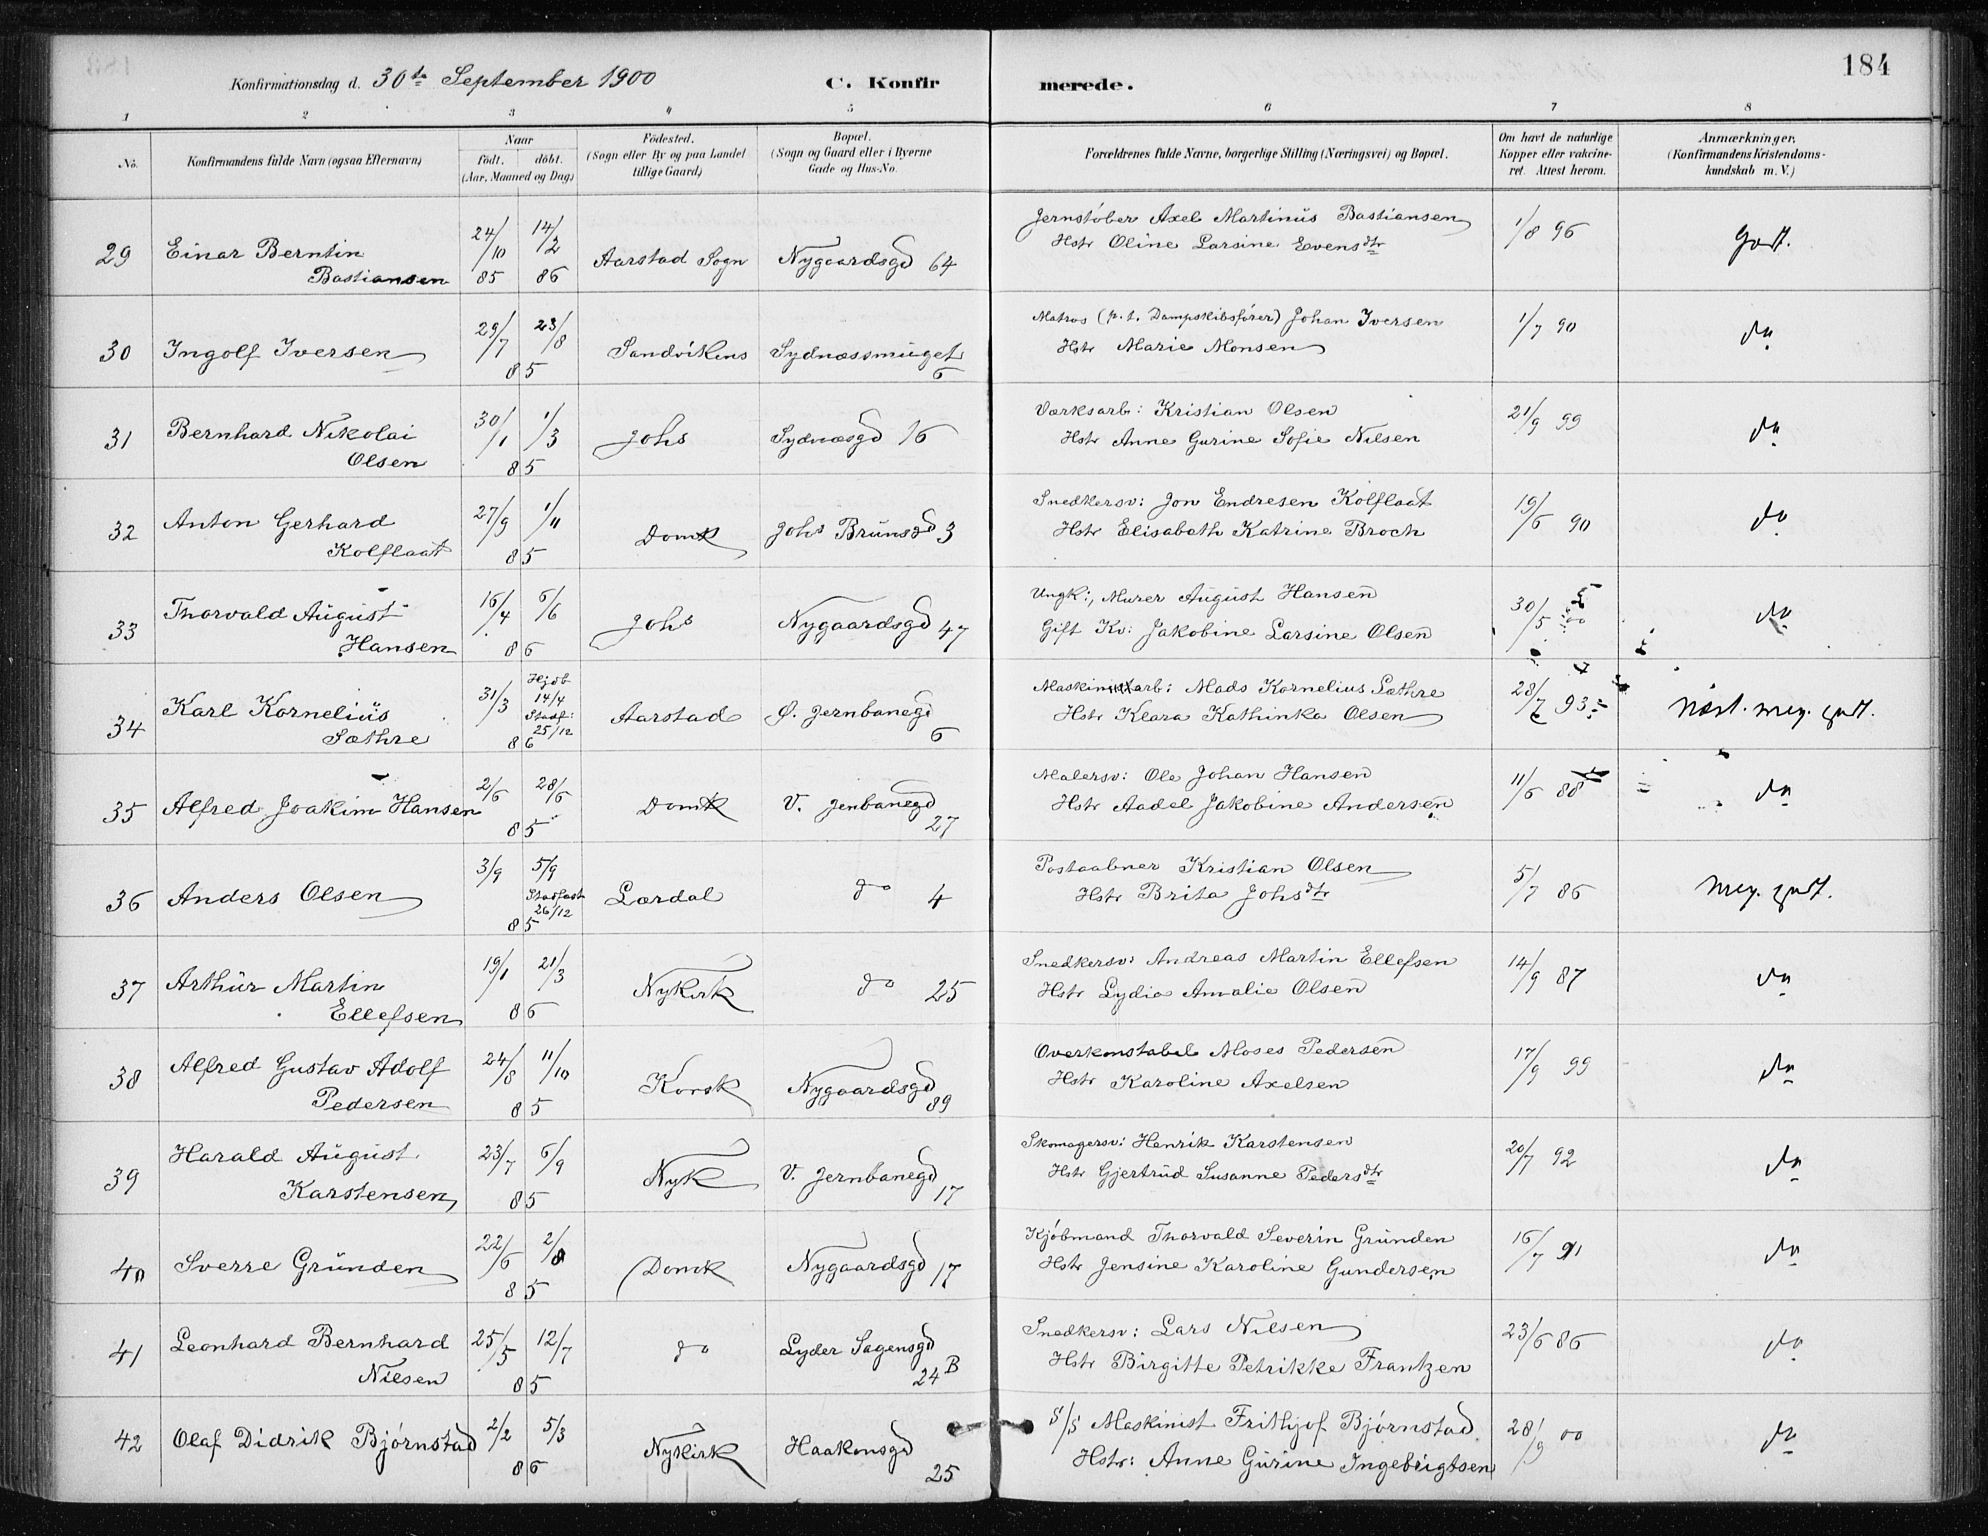 184
Konfirmationsdag d. 30te September 1900
C. Konfirmerede.
1 2 3 4 5 6 7 8
No. Konfirmandens fulde Navn (ogsaa Efternavn) Naar født. døbt. (Aar, Maaned og Dag) Fødested. (Sogn eller By og paa Landet tillige Gaard) Bopæl. (Sogn og Gaard eller i Byerne Gade og Hus-No. Forældrenes fulde Navne, borgerlige Stilling (Næringsvei) og Bopæl. Om havt de naturlige Kopper eller vakcineret. Attest herom. Anmærkninger. (Konfirmandens Kristendomskundskab m. V.)
29 Einar Berntin Bastiansen 24/10 85 14/2 86 Aarstad Sogn Nygaardsgd 64 Jernstøber Axel Martinus Bastiansen 1/8 96 Godt.
Hstr Oline Larsine Evensdtr
30 Ingolf Iversen 29/7 23/8 85 Sandvikens Sydnæssmuget 6 Matros (p.t. Dampskibsfører) Johan Iversen 1/7 90 do
Hstr Marie Monsen
31 Bernhard Nikolai Olsen 30/1 1/3 85 Johs Sydnæsgd 16 Værksarb: Kristian Olsen 21/9 99 do
Hstr Anne Gurine Sofie Nilsen
32 Anton Gerhard Kolflaat 27/9 1/11 85 Domk Johs Brunsgd 3 Snedkersv: Jon Endresen Kolflaat 19/6 90 do
Hstr Elisabeth Katrine Broch
33 Thorvald August Hansen 16/4 6/6 86 Johs Nygaardsgd 47 Ungk:, Murer August Hansen 30/5 00 do
Gift Kv: Jakobine Larsine Olsen
34 Karl Kornelius Sæthre 31/3 Hjdb 14/4 Stadf: 25/12 86 Aarstad Ø. Jernbanegd 6 Maskinarb: Mads Kornelius Sæthre 28/7 93 Næst. meg. godt.
Hstr Klara Kathinka Olsen
35 Alfred Joakim Hansen 2/6 28/6 85 Domk V. Jenbanegd 27 Malersv: Ole Johan Hansen 11/6 88 do
Hstr Aadel Jakobine Andersen
36 Anders Olsen 3/9 5/9 Stadfast 26/12 85 Lærdal do 4 Postaabner Kristian Olsen 5/7 86 meg. godt.
Hstr Brita Johsdtr
37 Arthur Martin Ellefsen 19/1 21/3 86 Nykirk do 25 Snedkersv: Andreas Martin Ellefsen 14/9 87 do
Hstr Lydia Amalie Olsen
38 Alfred Gustav Adolf Pedersen 24/8 11/10 85 Korsk Nygaardsgd 89 Overkonstabel Moses Pedersen 17/9 99 do
Hstr Karoline Axelsen
39 Harald August Karstensen 23/7 6/9 85 Nyk V. Jernbanegd 17 Skomagersv: Henrik Karstensen 20/7 92 do
Hstr Gjertrud Susanne Pedersdtr
40 Sverre Grunden 22/6 2/8 85 Domk Nygaardsgd 17 Kjøbmand Thorvald Severin Grunden 16/7 91 do
Hstr Jensine Karoline Gundersen
41 Leonhard Bernhard Nilsen 25/5 12/7 85 do Lyder Sagensgd 24 B Snedkersv: Lars Nilsen 23/6 86 do
Hstr Birgitte Petrikke Frantzen
42 Olaf Didrik Bjørnstad 2/2 5/3 86 Nykirk Haakonsgd 25 S/S Maskinist Frithjof Bjørnstad 28/9 00 do
Hstr: Anne Gurine Ingebrigtsen